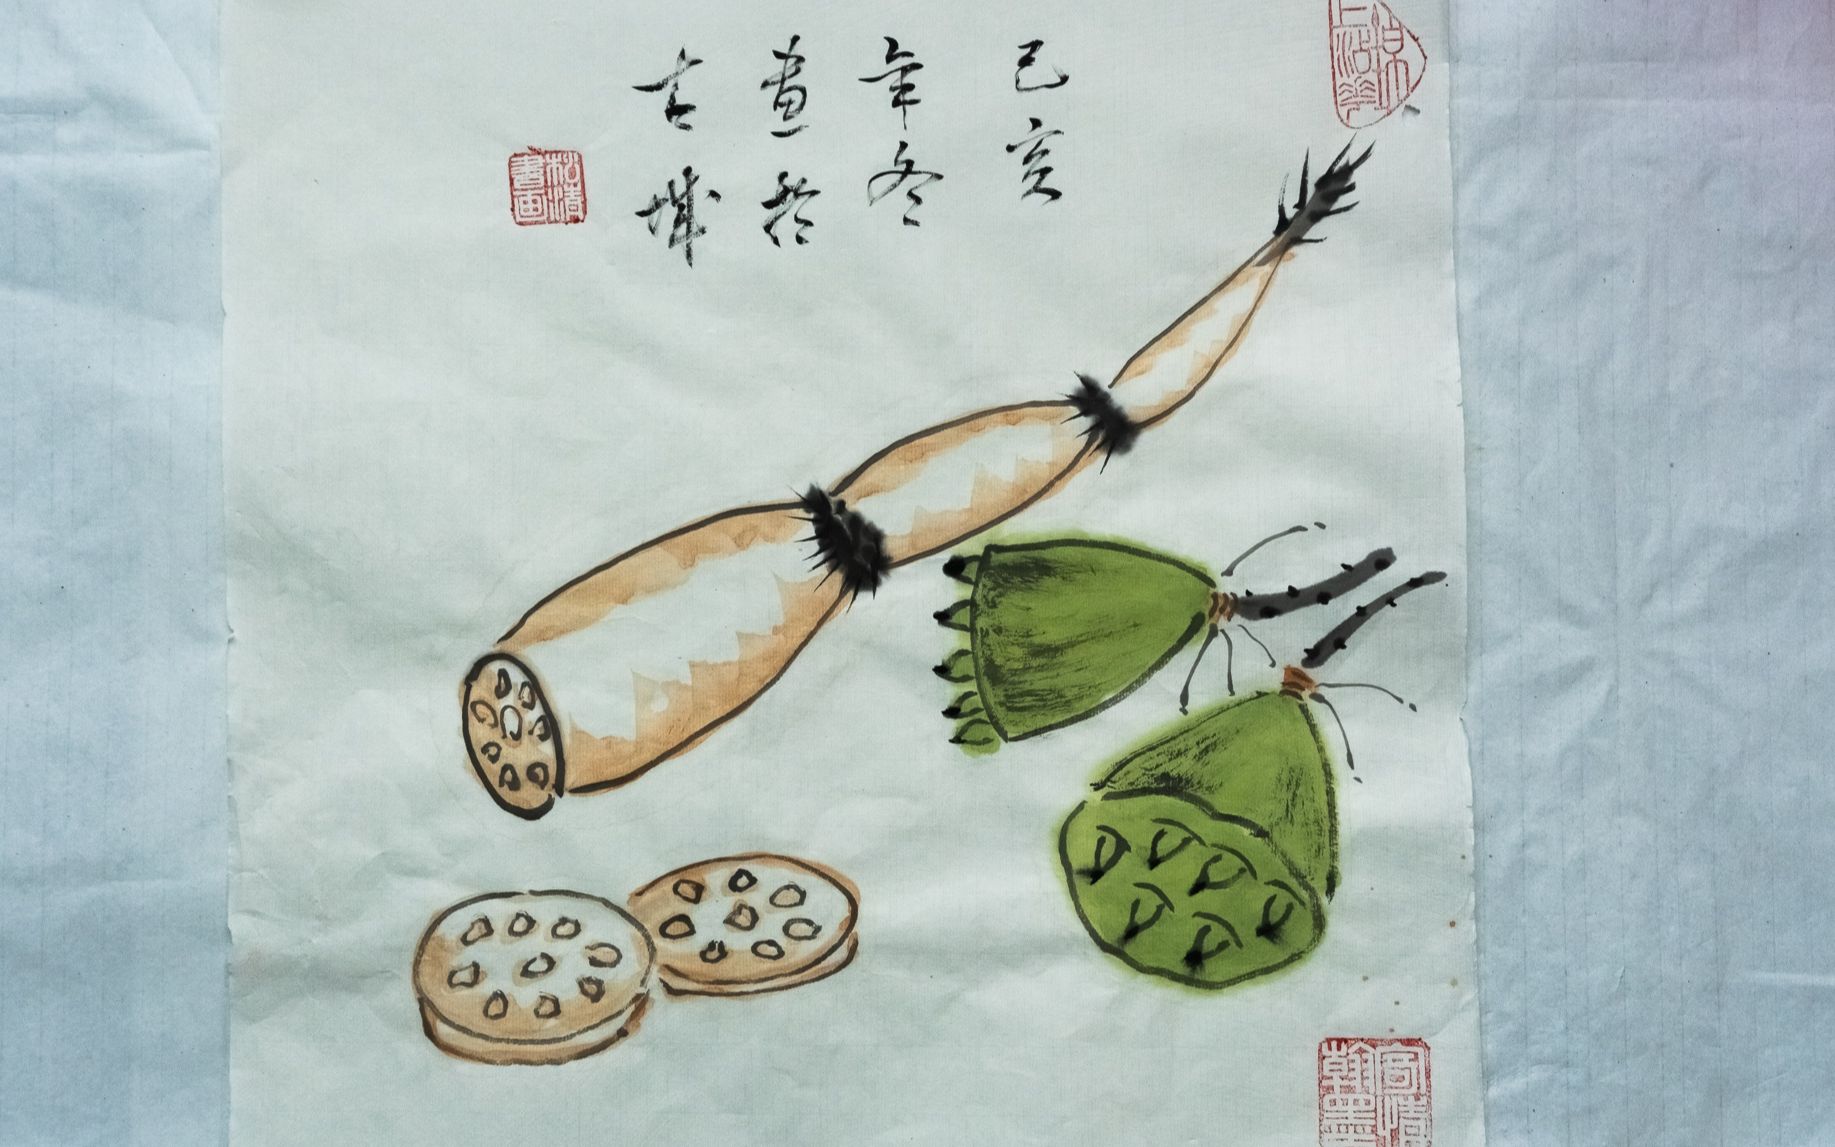 己亥
年冬
畫於
古城
松清
書画
寄情
翰墨